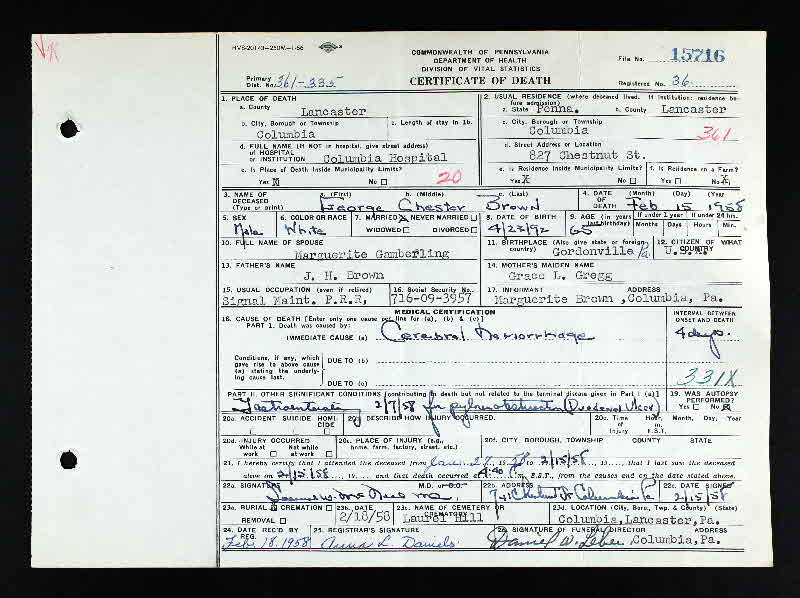 HVS-20143-250M-1-56
COMMONWEALTH OF PENNSYLVANIA
DEPARTMENT OF HEALTH
DIVISION OF VITAL STATISTICS
CERTIFICATE OF DEATH
File No. 15716
Primary Dist. No. 361-335
Registered No. 36
1. PLACE OF DEATH
a. County Lancaster
2. USUAL RESIDENCE (where deceased lived. If institution: residence before admission)
a. State Penna. b. County Lancaster
b. City, Borough or Township Columbia
c. Length of stay in 1b.
c. City, Borough or Township Columbia
361
d. FULL NAME (If NOT in hospital, give street address) of HOSPITAL or INSTITUTION Columbia Hospital
d. Street Address or Location
827 Chestnut St.
e. Is Place of Death Inside Municipality Limits?
Yes X No
20
e. Is Residence Inside Municipality Limits? Yes X No
f. Is Residence on a Farm? Yes No X
3. NAME OF DECEASED (Type or print) a. (First) George b. (Middle) Chester c. (Last) Brown
4. DATE OF DEATH (Month) (Day) (Year) Feb 15 1958
5. SEX Male
6. COLOR OR RACE White
7. MARRIED X NEVER MARRIED WIDOWED DIVORCED
8. DATE OF BIRTH 4/23/92
9. AGE (in years last birthday) 65
If under 1 year Months Days
If under 24 hrs. Hours Min.
10. FULL NAME OF SPOUSE
Marguerite Gamberling
11. BIRTHPLACE (Also give state or foreign country) Gordonville Pa.
12. CITIZEN OF WHAT COUNTRY U.S.A.
13. FATHER'S NAME
J. H. Brown
14. MOTHER'S MAIDEN NAME
Grace L. Gregg
15. USUAL OCCUPATION (even if retired)
Signal Maint. P.R.R,
16. Social Security No.
716-09-3957
17. INFORMANT ADDRESS
Marguerite Brown ,Columbia, Pa.
MEDICAL CERTIFICATION
18. CAUSE OF DEATH [Enter only one cause per line for (a), (b) & (c)]
PART 1. Death was caused by:
IMMEDIATE CAUSE (a) Cerebral Hemorrhage
INTERVAL BETWEEN ONSET AND DEATH
4 days.
Conditions, if any, which gave rise to above cause (a) stating the underlying cause last.
DUE TO (b)
DUE TO (c)
331X
PART II. OTHER SIGNIFICANT CONDITIONS (contributing to death but not related to the terminal disease given in Part 1 (a))
2/7/58 for pyloric obstruction (Duodenal Ulcer)
19. WAS AUTOPSY PERFORMED?
Yes No X
20a. ACCIDENT SUICIDE HOMICIDE
20b. DESCRIBE HOW INJURY OCCURRED.
20c. Time of Injury Hour m. E.S.T. Month, Day, Year
20d. INJURY OCCURRED
While at work Not while at work
20e. PLACE OF INJURY (e.g., home, farm, factory, street, etc.)
20f. CITY, BOROUGH, TOWNSHIP COUNTY STATE
21. I hereby certify that I attended the deceased from 19 to 2/15/58, 19, that I last saw the deceased
alive on 2/15/58, 19, and that death occurred at m., E.S.T., from the causes and on the date stated above.
22a. SIGNATURE M.D. or D.O.
22b. ADDRESS Chestnut St Columbia Pa
22c. DATE SIGNED 2/15/58
23a. BURIAL CREMATION REMOVAL
23b. DATE 2/18/58
23c. NAME OF CEMETERY OR CREMATORY Laurel Hill
23d. LOCATION (City, Boro, Twp. & County) (State)
Columbia,Lancaster,Pa.
24. DATE REC'D BY REG. Feb. 18, 1958
25. REGISTRAR'S SIGNATURE Anna L. Daniels
26. SIGNATURE OF FUNERAL DIRECTOR ADDRESS
Daniel W. Leber ,Columbia,Pa.